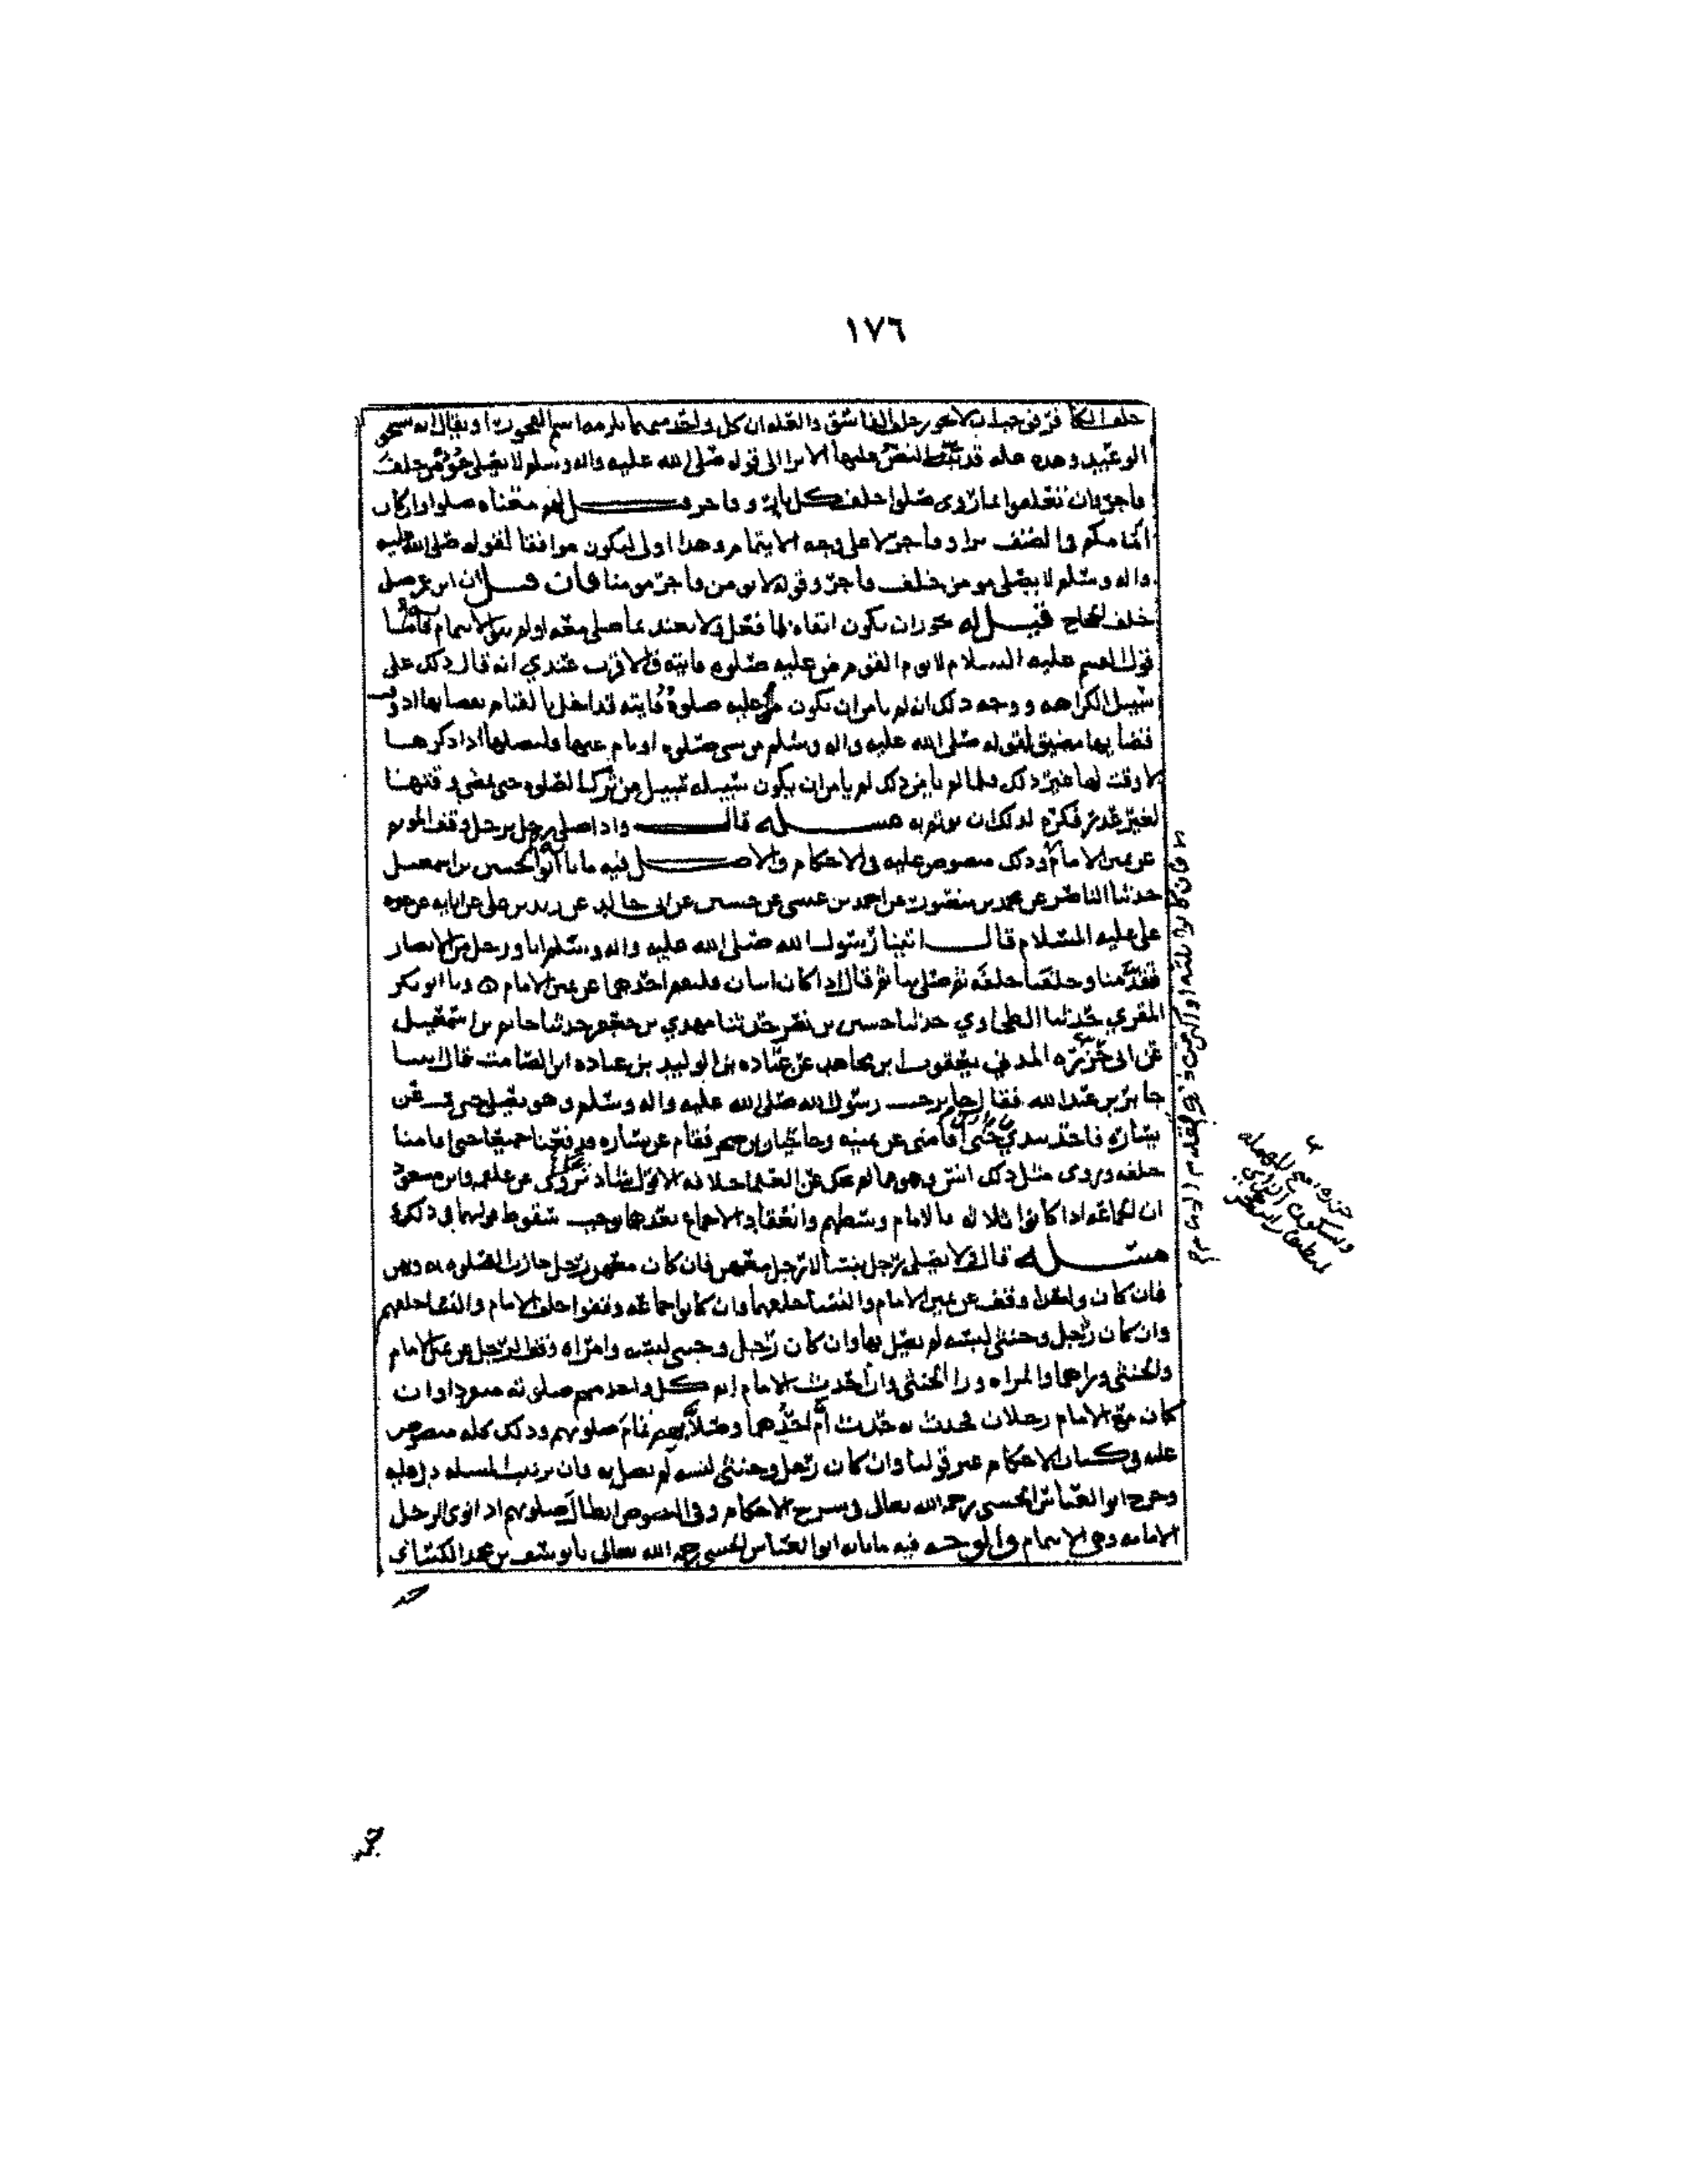 ١٧٦
خلف الكافر فوجب ان لا تجوز خلف الفاسق والعلة ان كل واحد منهما يلزمه اسم الفجور او يقال انه يستحق
الوعيد وهذه علة قد نبه النص عليها الا ترا الى قوله صلى الله عليه واله وسلم لا يصلي مؤمن خلف
فاجر فان تعلقوا بما روي صلوا خلف كل بار وفاجر قيل لهم معناه صلوا وان كان
امامكم في الصف برا وفاجرا لا على وجه الايتمام وهذا اولى ليكون موافقا لقوله صلى الله عليه
واله وسلم لا يصلي مومن خلف فاجر وقوله لا يومن فاجر مومنا فان قيل ان ابن عمر صلى
خلف الحجاج قيل له يجوز ان يكون اتقاه لما فعل ولا يعتد بما صلى معه او لم ينو الايتمام به فاما
قول القسم عليه السلام لا يوم القوم من عليه صلوه فايته فالاقرب عندي انه قال ذلك على
سبيل الكراهه ووجه ذلك انه لم يامن ان تكون من عليه صلوة فايته قد اخل بالقيام بقضائها اذ وقت
قضايها مضيق لقوله صلى الله عليه واله وسلم من نسي صلوه او نام عنها فليصلها اذا ذكرها
لا وقت لها غير ذلك فلما لم يامن ذلك لم يامن ان يكون سبيله سبيل من ترك الصلوه حتى مضى وقتها
لغير عذر فكره لذلك ان يوتم به مسئله قال واذا صلى رجل برجل وقف الموتم
عن يمين الامام وذلك منصوص عليه في الاحكام والاصل فيه ما نا ابو الحسين بن اسمعيل
حدثنا الناصر عن محمد بن منصور عن احمد بن عيسى عن حسين عن ابي خالد عن زيد بن علي عن ابايه عن
علي عليه السلام قال اتينا رسول الله صلى الله عليه واله وسلم انا ورجل من الانصار
فتقدمنا وخلفنا خلفه ثم صلى بنا ثم قال اذا كان اثنان فليقم احدهما عن يمين الامام ۵ ونا ابو بكر
المقري حدثنا الطحاوي حدثنا حسين بن نصر حدثنا مهدي بن جعفر حدثنا حاتم بن اسمعيل
عن ابي حزره المدني يعقوب ابن مجاهد عن عباده بن الوليد بن عباده ابن الصامت قال اتينا
جابر بن عبد الله فقال جابر جيت رسول الله صلى الله عليه واله وسلم وهو يصلي حتى قمت عن
يساره فاخذ بيدي حتى اقامني عن يمينه وجا جبار بن صخر فقام عن يساره فدفعنا جميعا حتى اقامنا
خلفه وروى مثل ذلك انس وهو مما لم يحك عن العلما خلافه الا قول شاذ يروى عن علقمه وابن مسعود
ان الجماعه اذا كانوا ثلاثه قام الامام وسطهم وانعقاد الاجماع بعدهما يوجب سقوط قولهما في ذلك
مسئله قال ولا يصلي رجل بنسا لا رجل معهن فان كان معهن رجل جازت الصلوه به وبهن
فان كان واحدا وقف عن يمين الامام والنسا خلفهما وان كانوا جماعه وقفوا خلف الامام والنسا خلفهم
وان كان رجل وخنثى لبسه لم يصل بها وان كان رجل وخنثى لبسه وامراه وقف الرجل عن يمين الامام
والخنثى وراهما والمراه ورا الخنثى وان احدث الامام اتم كل واحد منهم صلوته منفردا وان
كان مع الامام رجلان فحدث به حدث أم احدهما وصلا بهم تمام صلوتهم وذلك كله منصوص
عليه في كتاب الاحكام غير قولنا وان كان رجل وخنثى لبسه لم يصل به فان ترتيب المسله دل عليه
وخرج ابو العباس الحسني رحمه الله تعالى في شرح الاحكام وفي النصوص ابطال صلوتهم اذ انوى الرجل
الامامه وهي الايتمام والوجه فيه ما نا به ابو العباس الحسني رحمه الله تعالى نا يوسف بن محمد الكسائي